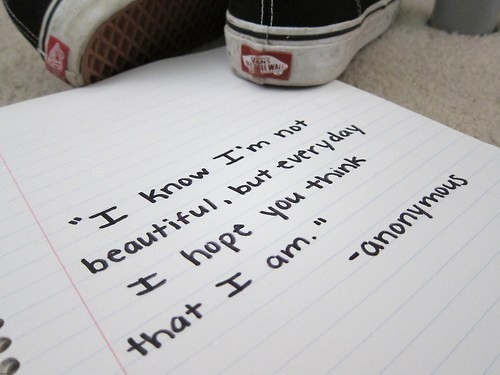 "I know I'm not
beautiful, but everyday
I hope you think
that I am."
-anonymous
VANS